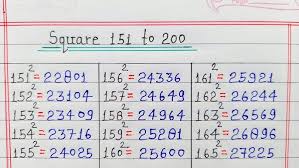 Square 151 to 200
151² = 22801 156² = 24336 161² = 25921
152² = 23104 157² = 24649 162² = 26244
153² = 23409 158² = 24964 163² = 26569
154² = 23716 159² = 25281 164² = 26896
155² = 24025 160² = 25600 165² = 27225